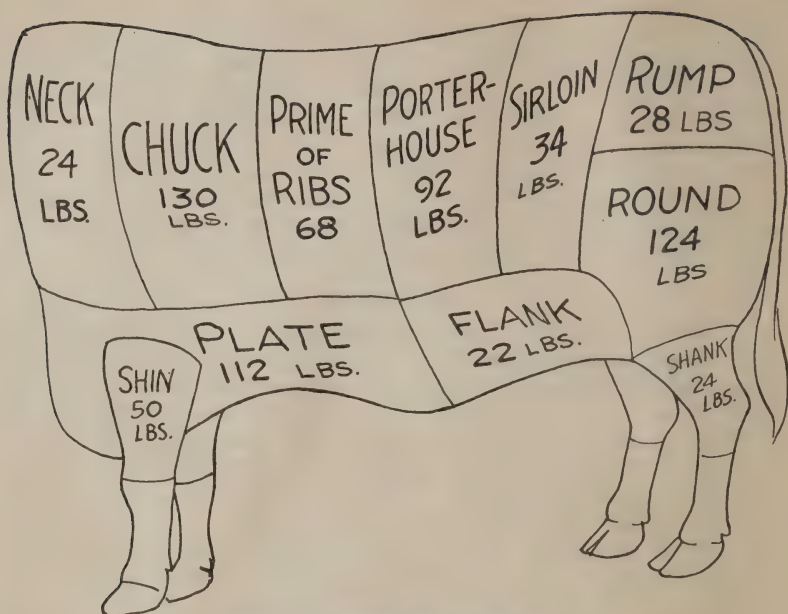 NECK
24
LBS.
CHUCK
130
LBS.
PRIME
OF
RIBS
68
PORTER-
HOUSE
92
LBS.
SIRLOIN
34
LBS.
RUMP
28 LBS
ROUND
124
LBS
PLATE
112 LBS.
FLANK
22 LBS.
SHIN
50
LBS.
SHANK
24
LBS.